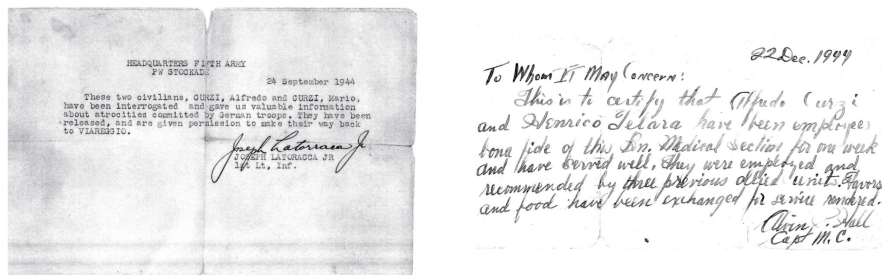 HEADQUARTERS FIFTH ARMY
PW STOCKADE
24 September 1944
These two civilians, CURZI, Alfredo and CURZI, Mario,
have been interrogated and gave us valuable information
about atrocities committed by German troops. They have been
released, and are given permission to make their way back
to VIAREGGIO.
Joseph Latorraca Jr
JOSEPH LATORACCA JR
1st Lt, Inf.
22 Dec. 1944
To Whom IT May Concern:
This is to certify that Alfredo Curzi
and Henrico Telara have been employees
bona fide of this Bn. Medical Section for one week
and have served well. They were employed and
recommended by three previous allied units. Favors
and food have been exchanged for service rendered.
Alvin Hall
Capt M.C.